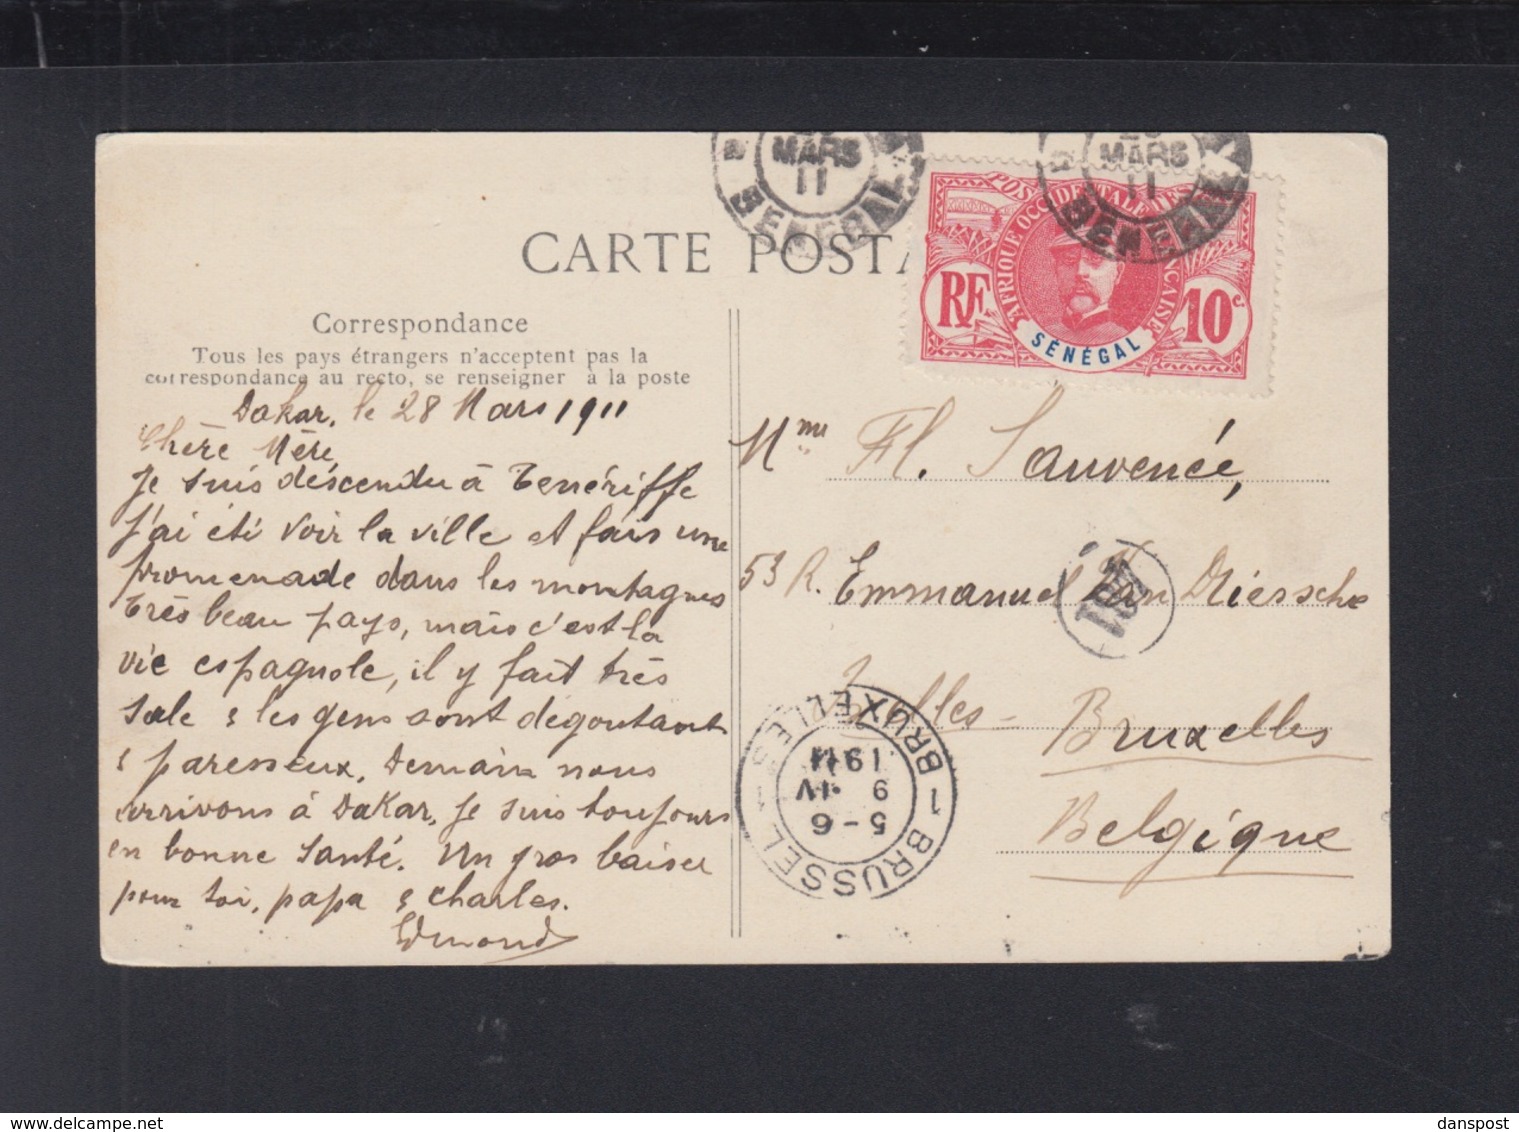 MARS
11
SENEGAL
MARS
11
SENEGAL
CARTE POSTA
POSTES
AFRIQUE OCCIDENTALE FRANÇAISE
RF
10c.
SÉNÉGAL
Correspondance
Tous les pays étrangers n'acceptent pas la
correspondance au recto, se renseigner à la poste
Dakar, le 28 Mars 1911
Chère Mère
Je suis descendu à Tenériffe
J'ai été voir la ville et fais une
promenade dans les montagnes
très beau pays, mais c'est la
vie espagnole, il y fait très
sale & les gens sont dégoutant
& paresseux. Demain nous
arrivons à Dakar, je suis toujours
en bonne santé. Un gros baiser
pour toi, papa & charles.
Edmond
Mme Fl. Sauvenée,
53 R. Emmanuel Van Driessche
Ixelles - Bruxelles
Belgique
1 BRUXELLES
1911
9 IV
5-6
1 BRUSSEL
danspost
delcampe.net